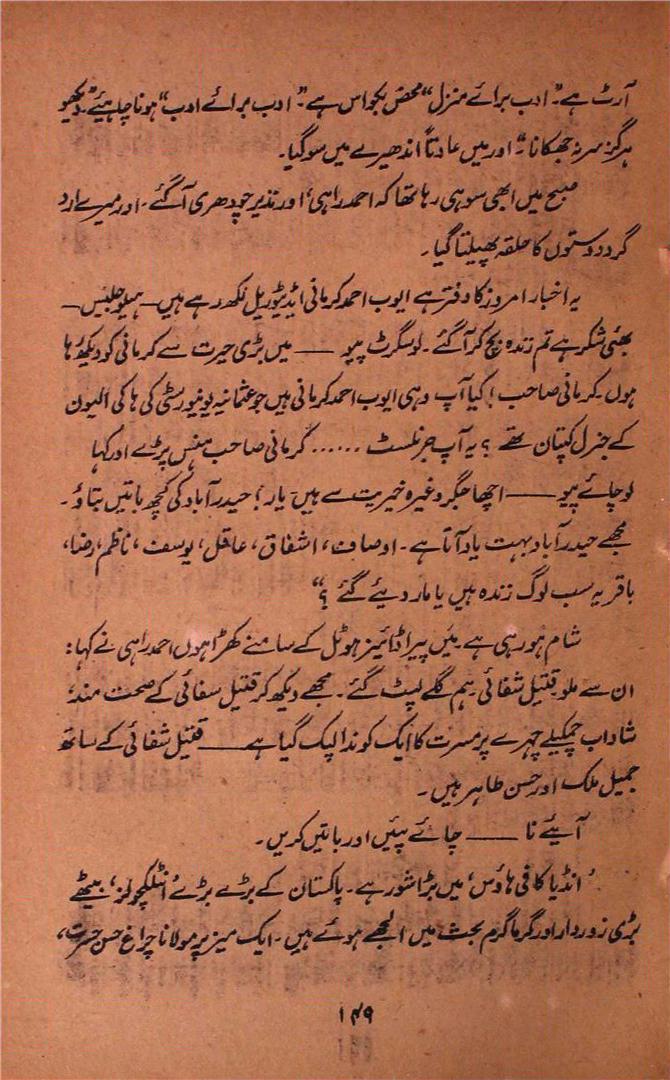 آرٹ ہے۔ "ادب برائے منزل" محض بکواس ہے۔ "ادب برائے ادب" ہونا چاہیئے۔ "دیکھیو
ہرگز سر نہ جھکانا۔" اور میں عادتاً اندھیرے میں سو گیا۔
صبح میں ابھی سو ہی رہا تھا کہ احمد راہی، اور نذیر چودھری آ گئے۔ اور میرے ارد
گرد دوستوں کا حلقہ پھیلتا گیا۔
یہ اخبار امروز کا دفتر ہے ایوب احمد کرمانی ایڈیٹوریل لکھ رہے ہیں — ہیلو جلیس —
بھئی شکر ہے تم زندہ بچ کر آ گئے۔ لو سگرٹ پیو —— میں بڑی حیرت سے کرمانی کو دیکھ رہا
ہوں۔ کرمانی صاحب! کیا آپ وہی ایوب احمد کرمانی ہیں جو عثمانیہ یونیورسٹی کی ہاکی الیون
کے جنرل کپتان تھے؟ یہ آپ جرنلسٹ ...... کرمانی صاحب ہنس پڑے اور کہا
لو چائے پیو —— اچھا جگر وغیرہ خیریت سے ہیں یار! حیدرآباد کی کچھ باتیں بتاؤ۔
مجھے حیدرآباد بہت یاد آتا ہے۔ اوصاف، اشفاق، عاقل، یوسف، ناظم، رضا،
باقر یہ سب لوگ زندہ ہیں یا مار دیئے گئے؟"
شام ہو رہی ہے۔ میں پیراڈائیز ہوٹل کے سامنے کھڑا ہوں احمد راہی نے کہا:
ان سے ملو قتیل شفائی۔ ہم گلے لپٹ گئے۔ مجھے دیکھ کر قتیل سفائی کے صحت مند،
شاداب چمکیلے چہرے پر مسرت کا ایک کوندا لپک گیا ہے —— قتیل شفائی کے ساتھ
جمیل ملک اور حسن طاہر ہیں۔
آیئے نا —— چائے پیئں اور باتیں کریں۔
'انڈیا کافی ہاؤس' میں بڑا شور ہے۔ پاکستان کے بڑے بڑے 'انٹلکچولز' بیٹھے
بڑی زوردار اور گرما گرم بحث میں الجھے ہوئے ہیں۔ ایک میز پر مولانا چراغ حسن حسرت،
۱۴۹